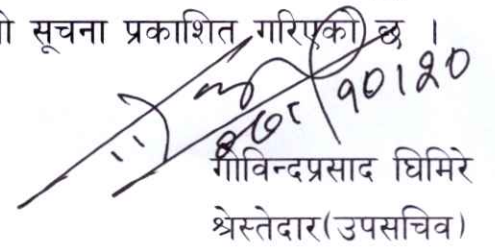 सूचना प्रकाशित गरिएको छ ।
गोविन्दप्रसाद घिमिरे
श्रेस्तेदार(उपसचिव)